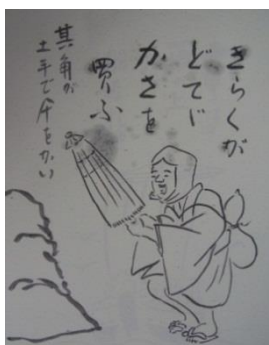 きらくが
どてじ
かさを
買ふ
其角が
土手で仐をかい